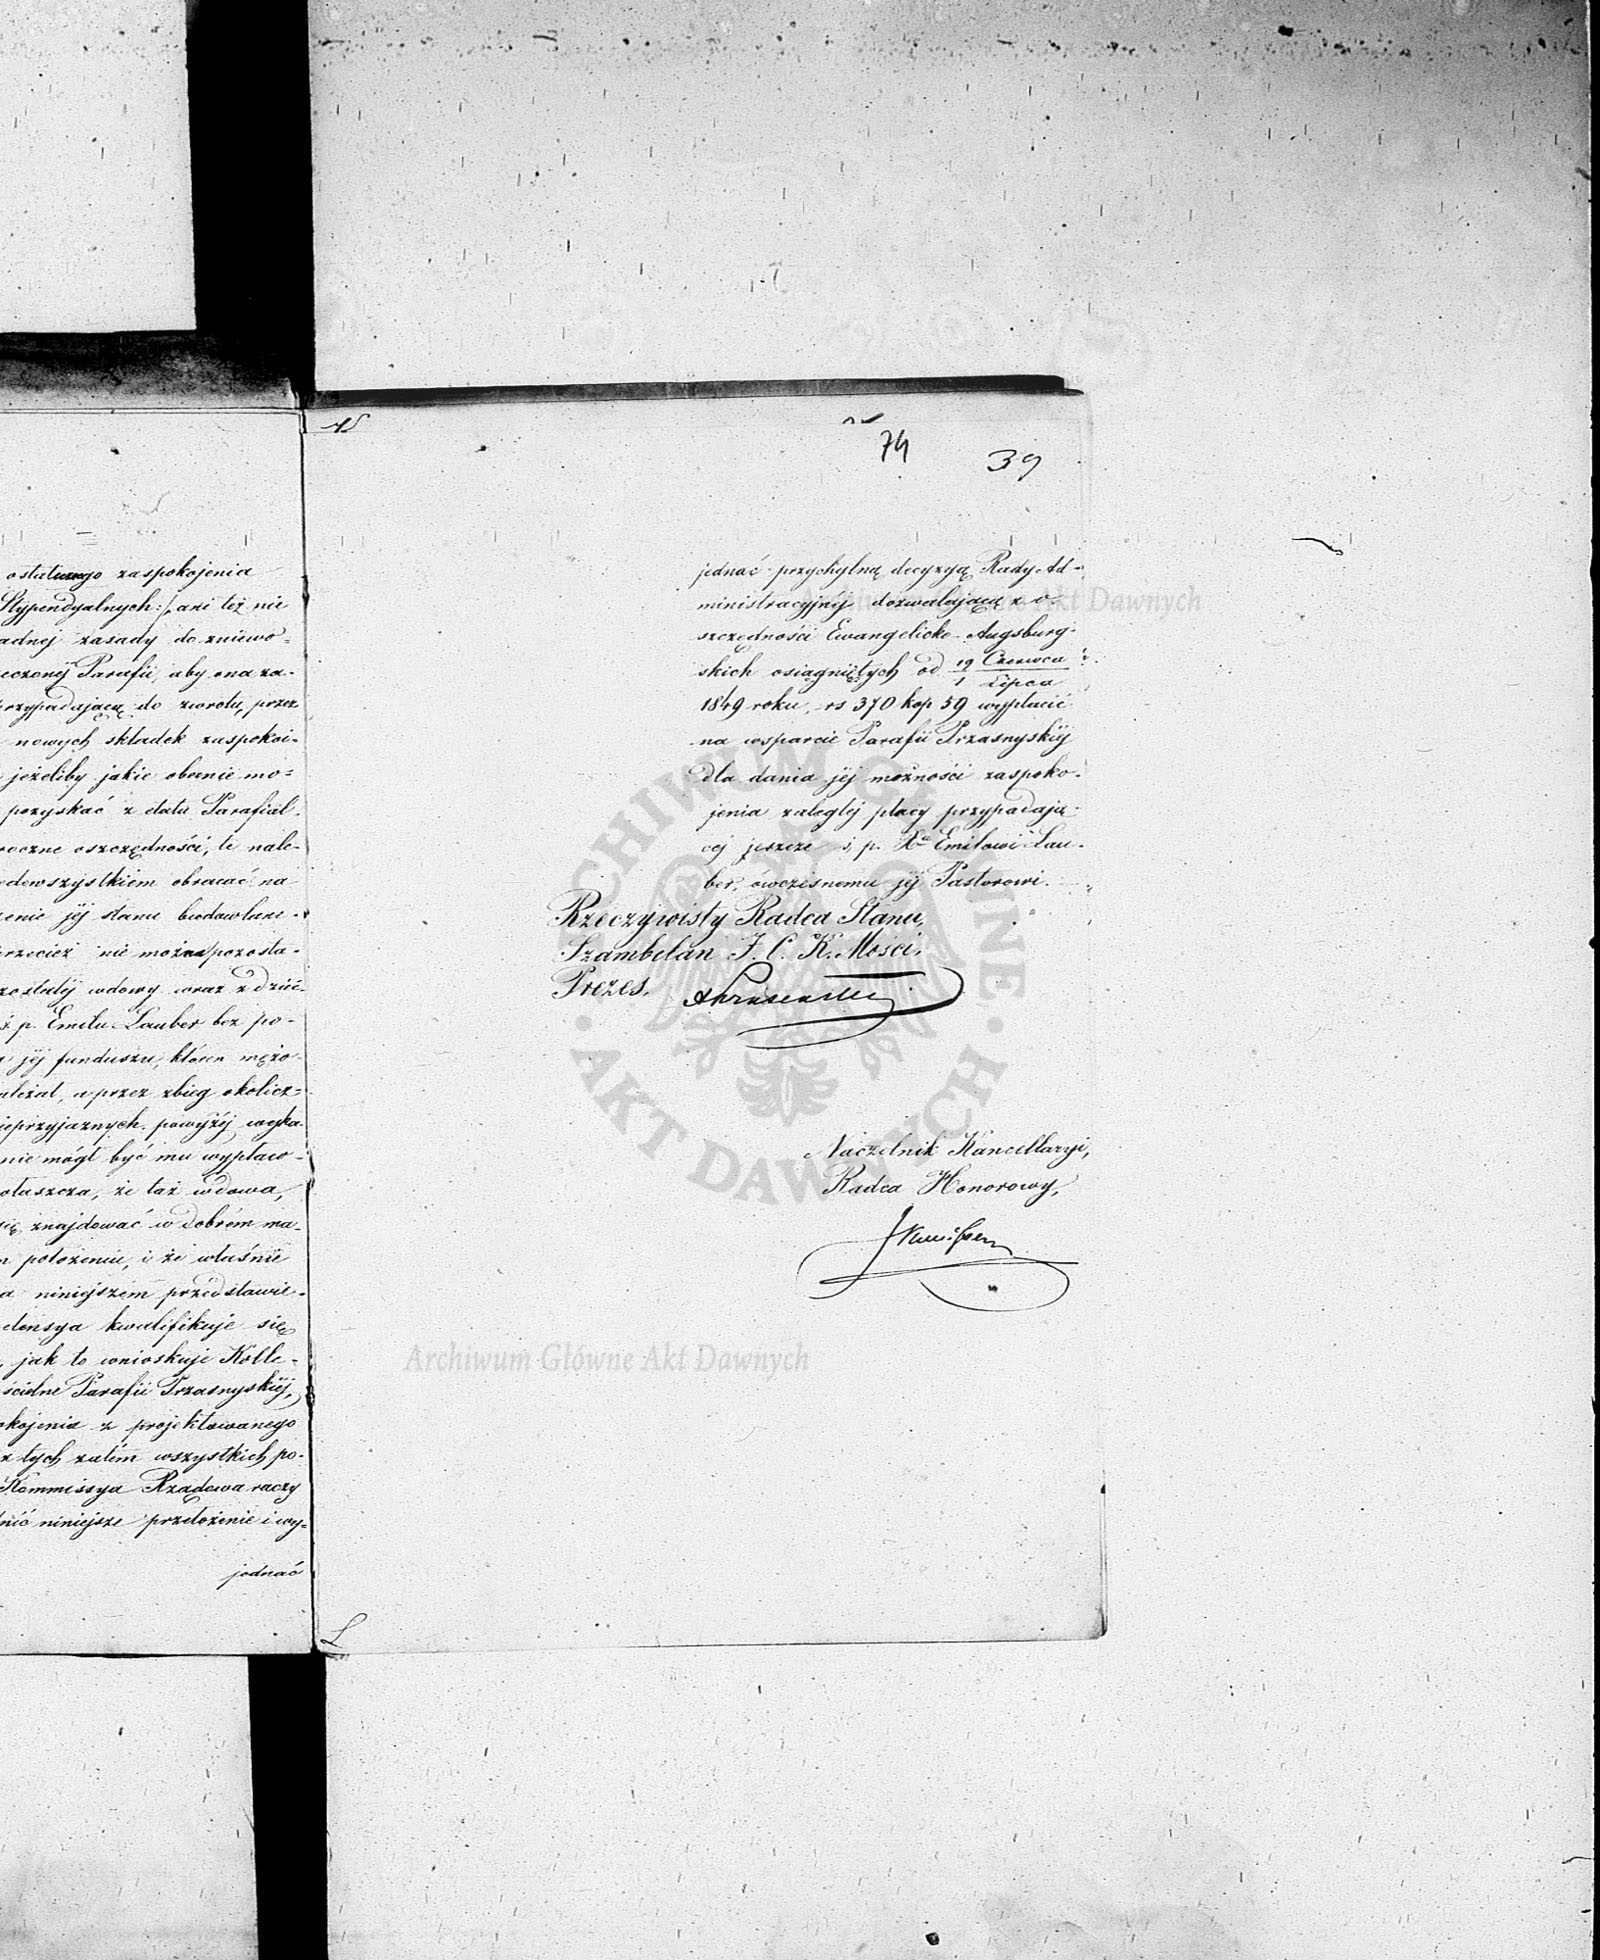 ostatecznego zaspokojenia
Stypendyalnych:/, ani też nie
adnej zasady do zniewo-
eczonej Parafii, aby ona za-
przypadającą do zwrotu, przez
nowych składek zaspokoi-
jeżeliby jakie obecnie mo-
pozyskać z etatu Parafial-
roczne oszczędności, te nale-
edewszystkiem obracać na
enie jéj stanu budowlane-
przecież nie można pozosta-
zostałéj wdowy wraz z dzie-
ś. p. Emilu Lauber bez po-
jéj funduszu, któren mężo-
należał, a przez zbieg okolicz-
nieprzyjaznych powyżéj wyka-
nie mógł być mu wypłaco-
ołaszcza, że taż wdowa,
się znajdować w dobrém ma-
położeniu, i że właśnie
niniejszem przedstawie-
etensya kwalifikuje się
jak to wnioskuje Kolle-
ścielne Parafii Przasnyskiéj,
okojenia z projektowanego
z tych zatém wszystkich po-
Kommissya Rządowa raczy
nić niniejsze przełożenie i wy-
jednać
74
39
jednać przychylną decyzyą Rady Ad-
ministracyjnéj dozwalającą z o-
szczędności Ewangelicko-Augsburg-
skich osiągniętych od 19 Czerwca / 1 Lipca
1849 roku, rs 370 kop 59 wypłacić
na wsparcie Parafii Przasnyskiéj
dla dania jéj możności zaspoko-
jenia zaległéj płacy przypadają-
céj jeszcze ś. p. Xu Emilowi Lau-
ber, ówczesnemu jéj Pastorowi.
Rzeczywisty Radca Stanu,
Szambelan J. C. K. Mości,
Prezes,
Naczelnik Kancellaryi,
Radca Honorowy,
Archiwum Główne Akt Dawnych
ARCHIWUM GŁÓWNE · AKT DAWNYCH ·
Akt Dawnych